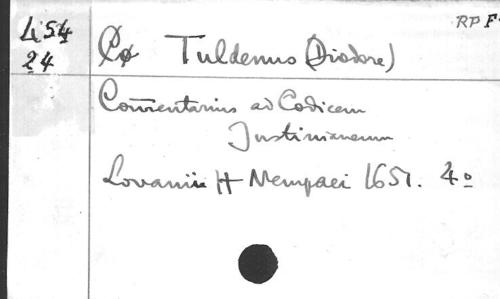 RP F
Li 54
24
Tuldenus (Diodore)
Com̄entarius ad Codicem
Justinianeum
Lovanii H Nempaei 1651. 4o